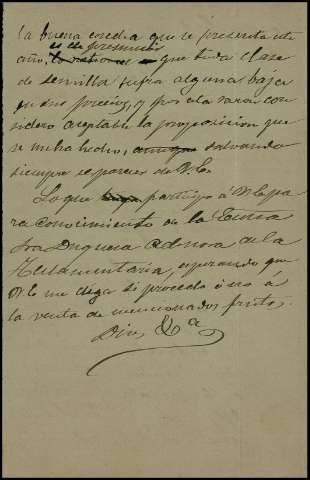 la buena cosecha que se presenta este
es de presumir
año, que toda clase
de semilla sufra alguna baja
en sus precios, y por esta razon con
sidero aceptable la proposicion que
se me ha hecho, salvando
siempre el parecer de V.E.
Lo que participo á V.E. pa
ra conocimiento de la Exma
Sra Duquesa Admora de la
Testamentaría, esperando que
V.E. me diga si procedo ó no á
la venta de mencionados frutos.
Dios &ª